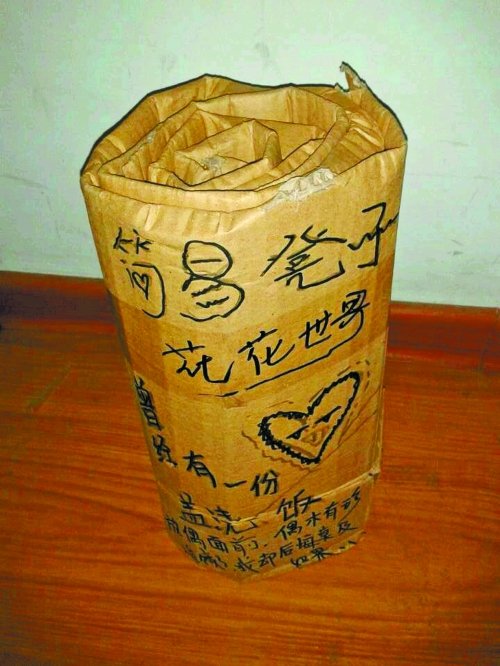 简易凳子
花花世哥
曾
经有一份
盖浇饭
放偶面前、偶木有珍
我却后悔莫及
如果...